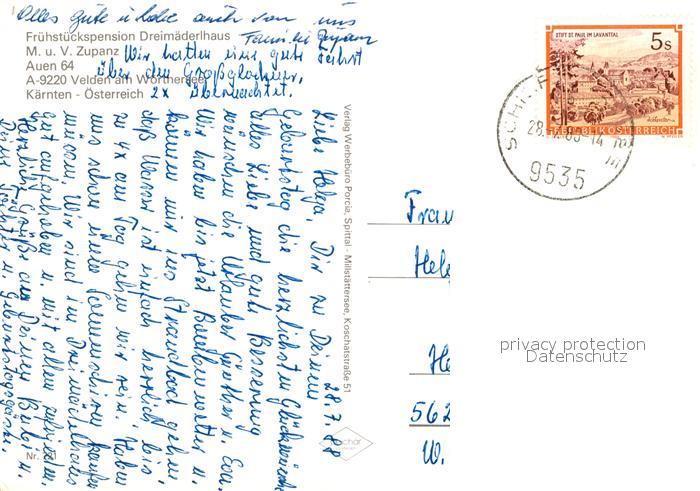 Alles gute u. liebe auch von uns
Familie Zupanz
Wir hatten eine gute Fahrt
über den Großglockner,
2x übernachtet.
Frühstückspension Dreimäderlhaus
M. u. V. Zupanz
Auen 64
A-9220 Velden am Wörthersee
Kärnten - Österreich
28.7.88
Liebe Helga, Dir zu Deinem
Geburtstag die herzlichsten Glückwünsche
alles Liebe und gute Besserung
wünschen die Urlauber Günther u. Eva.
Wir haben bis jetzt Bombenwetter u.
können nur ins Strandbad gehen
das Wasser ist einfach herrlich bis
zu 4x am Tag gehen wir rein. Haben
uns schon neue Sonnenschirm kaufen
müssen. Wir sind im Dreimäderlhaus
gut aufgehoben u. mit allem zufrieden.
Herzliche Grüße an Deinen Bubi u.
Deine Töchter u. Geburtstagsgäste.
Verlag Werbebüro Porcia, Spittal - Millstättersee, Koschatstraße 51
Nr.
STIFT ST. PAUL IM LAVANTTAL
5s
REPUBLIK ÖSTERREICH
9535
Frau
Helg
He
562
W.
privacy protection
Datenschutz